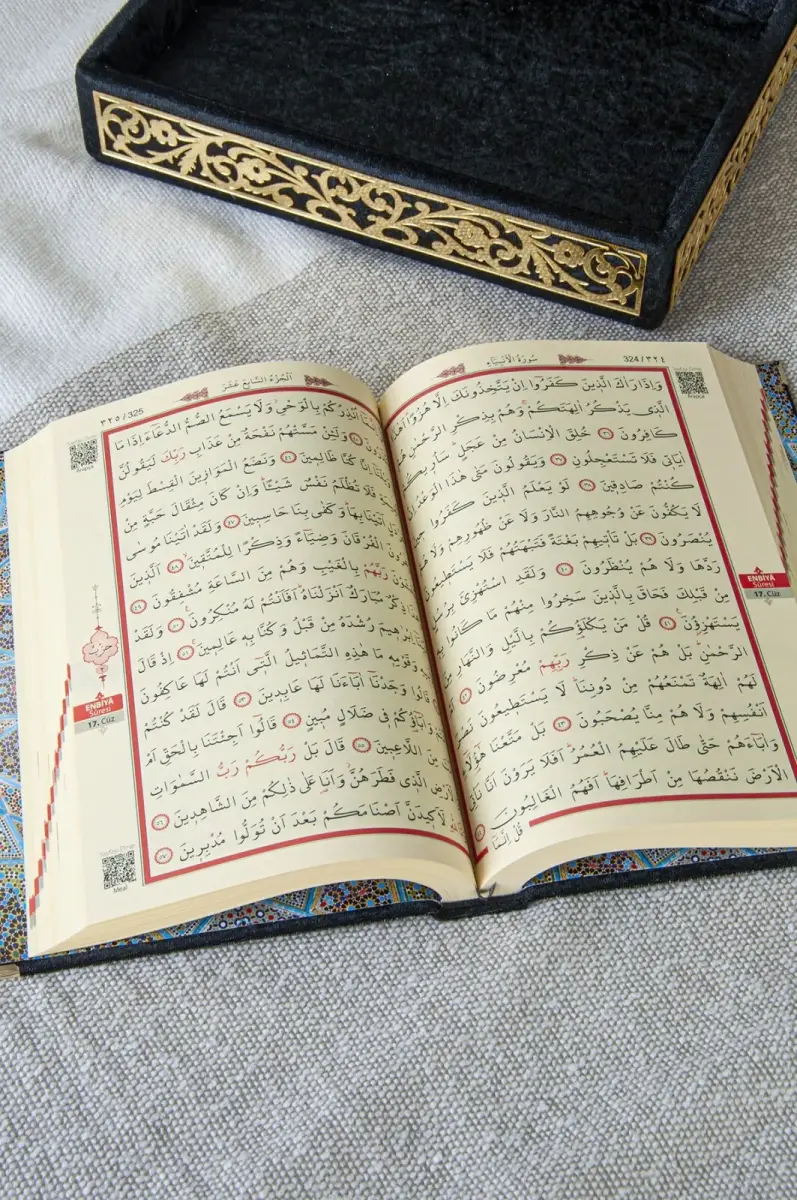 324 / ٣٢٤
سُورَةُ الْاَنْبِيَاءِ
Arapça
وَاِذَا رَاٰكَ الَّذ۪ينَ كَفَرُٓوا اِنْ يَتَّخِذُونَكَ اِلَّا هُزُوًاۜ اَهٰذَا
الَّذ۪ي يَذْكُرُ اٰلِهَتَكُمْۚ وَهُمْ بِذِكْرِ الرَّحْمٰنِ هُمْ
كَافِرُونَ ﴿٣٦﴾ خُلِقَ الْاِنْسَانُ مِنْ عَجَلٍۜ سَاُر۪يكُمْ
اٰيَات۪ي فَلَا تَسْتَعْجِلُونِ ﴿٣٧﴾ وَيَقُولُونَ مَتٰى هٰذَا الْوَعْدُ اِنْ
كُنْتُمْ صَادِق۪ينَ ﴿٣٨﴾ لَوْ يَعْلَمُ الَّذ۪ينَ كَفَرُوا ح۪ينَ
لَا يَكُفُّونَ عَنْ وُجُوهِهِمُ النَّارَ وَلَا عَنْ ظُهُورِهِمْ وَلَا هُمْ
يُنْصَرُونَ ﴿٣٩﴾ بَلْ تَأْت۪يهِمْ بَغْتَةً فَتَبْهَتُهُمْ فَلَا يَسْتَط۪يعُونَ
رَدَّهَا وَلَا هُمْ يُنْظَرُونَ ﴿٤٠﴾ وَلَقَدِ اسْتُهْزِئَ بِرُسُلٍ
مِنْ قَبْلِكَ فَحَاقَ بِالَّذ۪ينَ سَخِرُوا مِنْهُمْ مَا كَانُوا بِه۪
يَسْتَهْزِؤُ۫نَ۟ ﴿٤١﴾ قُلْ مَنْ يَكْلَؤُ۬كُمْ بِالَّيْلِ وَالنَّهَارِ مِنَ
الرَّحْمٰنِۜ بَلْ هُمْ عَنْ ذِكْرِ رَبِّهِمْ مُعْرِضُونَ ﴿٤٢﴾
لَهُمْ اٰلِهَةٌ تَمْنَعُهُمْ مِنْ دُونِنَاۜ لَا يَسْتَط۪يعُونَ نَصْرَ
اَنْفُسِهِمْ وَلَا هُمْ مِنَّا يُصْحَبُونَ ﴿٤٣﴾ بَلْ مَتَّعْنَا هٰٓؤُ۬لَٓاءِ
وَاٰبَٓاءَهُمْ حَتّٰى طَالَ عَلَيْهِمُ الْعُمُرُۜ اَفَلَا يَرَوْنَ اَنَّا نَأْتِي
الْاَرْضَ نَنْقُصُهَا مِنْ اَطْرَافِهَاۜ اَفَهُمُ الْغَالِبُونَ
قُلْ اِنَّمَٓا
ENBİYA
Sûresi
17. Cüz
اَلْجُزْءُ السَّابِعَ عَشَرَ
٣٢٥ / 325
Arapça
اُنْذِرُكُمْ بِالْوَحْيِۘ وَلَا يَسْمَعُ الصُّمُّ الدُّعَٓاءَ اِذَا مَا
﴿٤٥﴾ وَلَئِنْ مَسَّتْهُمْ نَفْحَةٌ مِنْ عَذَابِ رَبِّكَ لَيَقُولُنَّ
اِنَّا كُنَّا ظَالِم۪ينَ ﴿٤٦﴾ وَنَضَعُ الْمَوَاز۪ينَ الْقِسْطَ لِيَوْمِ
فَلَا تُظْلَمُ نَفْسٌ شَيْـًٔاۜ وَاِنْ كَانَ مِثْقَالَ حَبَّةٍ مِنْ
اَتَيْنَا بِهَاۜ وَكَفٰى بِنَا حَاسِب۪ينَ ﴿٤٧﴾ وَلَقَدْ اٰتَيْنَا مُوسٰى
الْفُرْقَانَ وَضِيَٓاءً وَذِكْرًا لِلْمُتَّق۪ينَۙ ﴿٤٨﴾ اَلَّذ۪ينَ
رَبَّهُمْ بِالْغَيْبِ وَهُمْ مِنَ السَّاعَةِ مُشْفِقُونَ ﴿٤٩﴾
ذِكْرٌ مُبَارَكٌ اَنْزَلْنَاهُۜ اَفَاَنْتُمْ لَهُ مُنْكِرُونَ۟ ﴿٥٠﴾ وَلَقَدْ
اِبْرٰه۪يمَ رُشْدَهُ مِنْ قَبْلُ وَكُنَّا بِه۪ عَالِم۪ينَۚ ﴿٥١﴾ اِذْ قَالَ
وَقَوْمِه۪ مَا هٰذِهِ التَّمَاث۪يلُ الَّت۪ٓي اَنْتُمْ لَهَا عَاكِفُونَ
قَالُوا وَجَدْنَٓا اٰبَٓاءَنَا لَهَا عَابِد۪ينَ ﴿٥٣﴾ قَالَ لَقَدْ كُنْتُمْ
وَاٰبَٓاؤُ۬كُمْ ف۪ي ضَلَالٍ مُب۪ينٍ ﴿٥٤﴾ قَالُٓوا اَجِئْتَنَا بِالْحَقِّ اَمْ
مِنَ اللَّاعِب۪ينَ ﴿٥٥﴾ قَالَ بَلْ رَبُّكُمْ رَبُّ السَّمٰوَاتِ
الَّذ۪ي فَطَرَهُنَّۘ وَاَنَا۬ عَلٰى ذٰلِكُمْ مِنَ الشَّاهِد۪ينَ ﴿٥٦﴾
لَاَك۪يدَنَّ اَصْنَامَكُمْ بَعْدَ اَنْ تُوَلُّوا مُدْبِر۪ينَ ﴿٥٧﴾
حزب
ENBİYA
Sûresi
17. Cüz
Meal